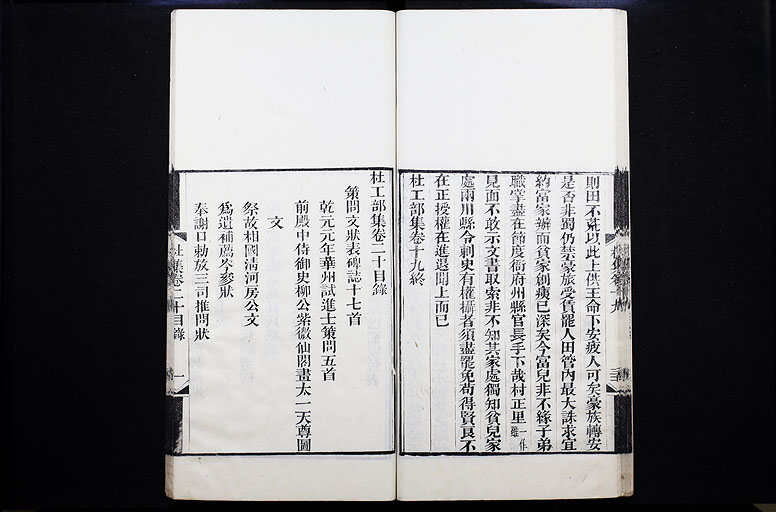 則田不荒以此上供王命下安疲人可矣豪族轉安
是否非蜀仍禁豪族受賃罷人田管內最大誅求宜
約富家辦而貧家創痍已深矣今富兒非不緣子弟
職掌盡在節度衙府州縣官長手下哉村正里一作雖
見面不敢示文書取索非不知其家處獨知貧兒家
處兩川縣令刺史有權攝者須盡罷免苟得賢良不
在正授權在進退聞上而已
杜工部集卷十九終
杜工部集卷二十目錄
策問文狀表碑誌十七首
乾元元年華州試進士策問五首
前殿中侍御史柳公紫微仙閣畫太一天尊圖
文
祭故相國清河房公文
爲遺補薦岑參狀
奉謝口敕放三司推問狀
杜集卷二十目錄
一